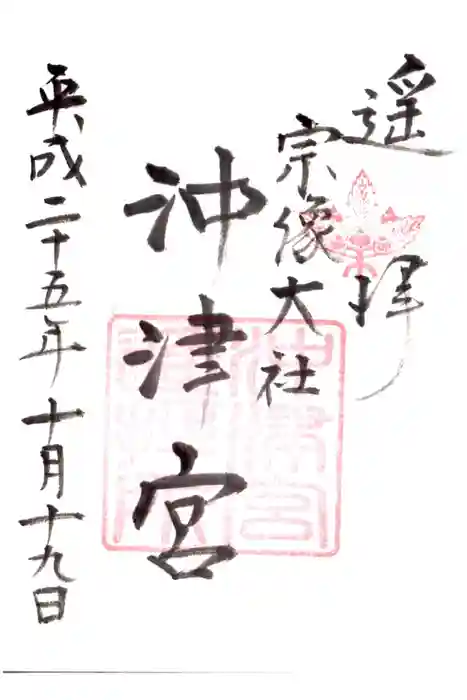 遥拝
宗像大社
沖津宮
平成二十五年十月十九日